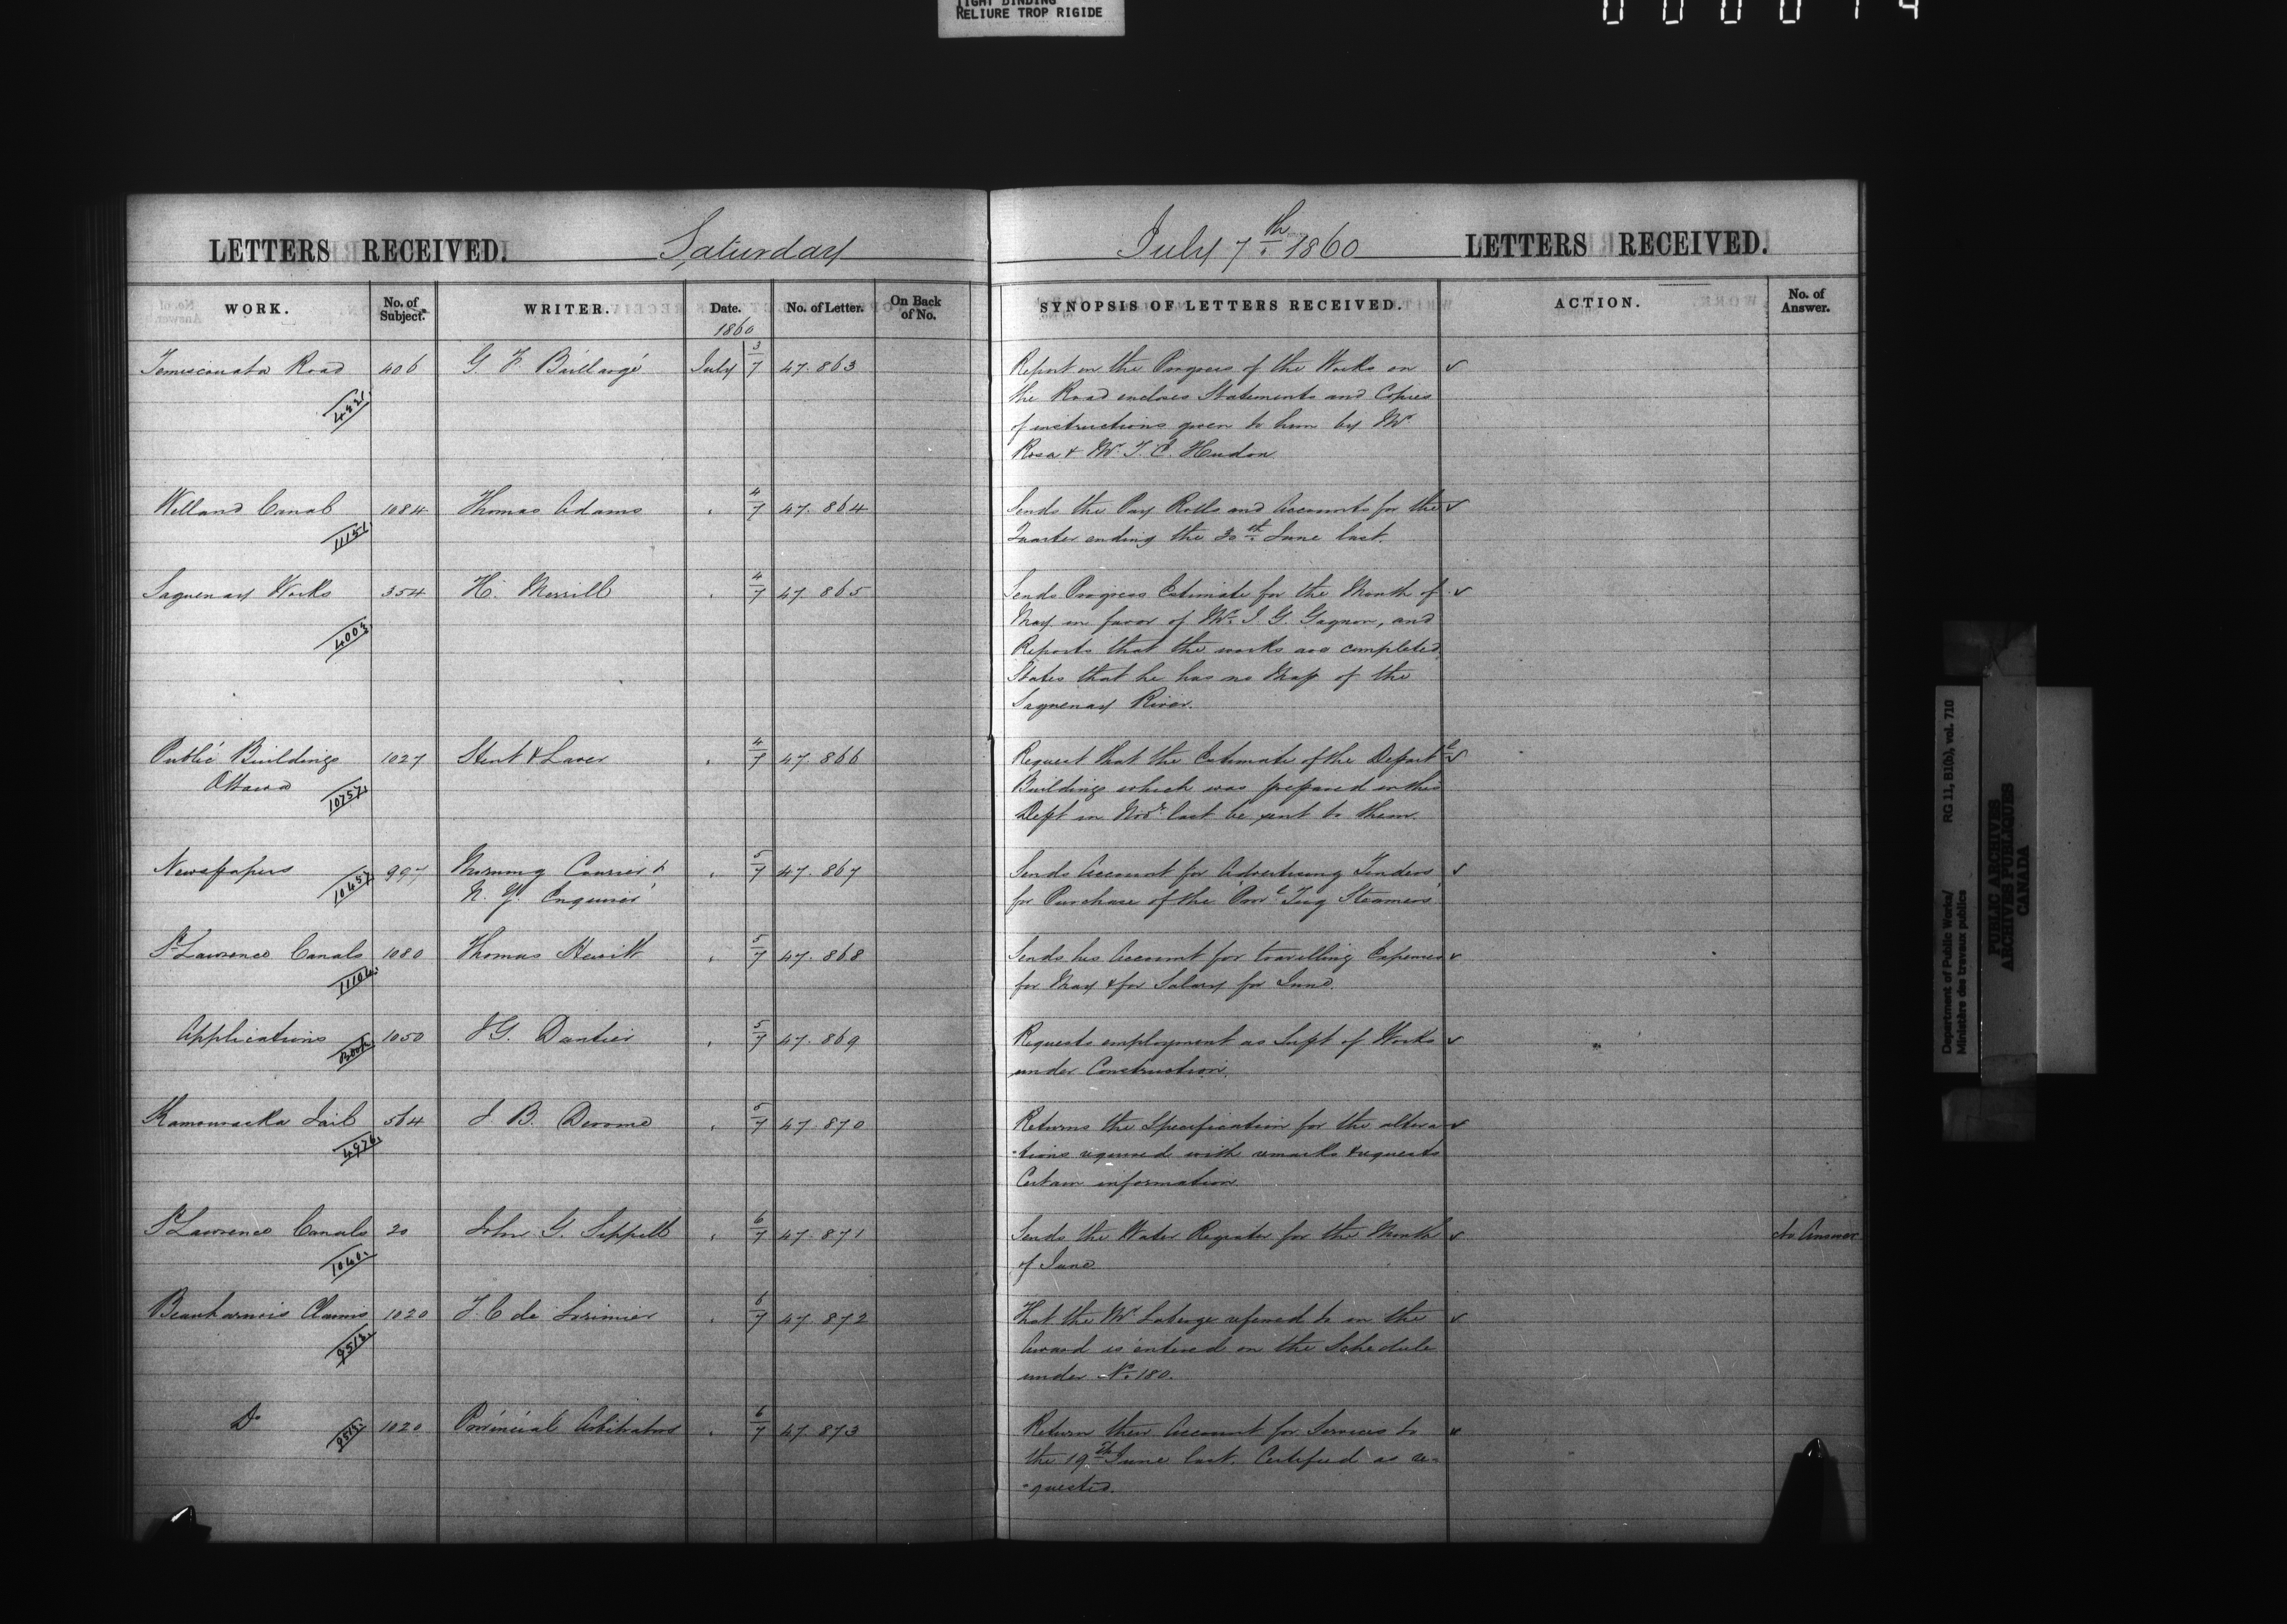 TIGHT BINDING
RELIURE TROP RIGIDE
LETTERS RECEIVED. Saturday July 7th 1860 LETTERS RECEIVED.
WORK. No. of Subject. WRITER. Date. No. of Letter. On Back of No. SYNOPSIS OF LETTERS RECEIVED. ACTION. No. of Answer.
1860
Temiscouata Road 406 G F Baillargé July 3/7 47.863 Report on the Progress of the Works on
the Road encloses Statements and Copies
of instructions given to him by Mr
Rosa & Mr T. C. Hudon
Welland Canal 1084 Thomas Adams " 4/7 47.864 Sends the Pay Rolls and Accounts for the
11151 Quarter ending the 30th June last.
Saguenay Works 354 H. Merrill " 4/7 47.865 Sends Progress Estimate for the Month of
4003 May in favor of Mr. I. G. Gagnon, and
Reports that the works are completed
States that he has no Map of the
Saguenay River.
Public Buildings 1027 Stent & Laver " 4/7 47.866 Request that the Estimate of the Depart t
Ottawa 10757 Buildings which was prepared in this
Dept in Novr last be sent to them.
Newspapers 10457 997 Morning Courier & " 5/7 47.867 Sends Account for Advertising Tenders
N. Y. Enquirer for Purchase of the Provl Tug Steamers
St Lawrence Canals 1080 Thomas Hewitt " 5/7 47.868 Sends his Account for travelling Expenses
11104 for May & for Salary for June.
Applications 1050 J G. Dantier " 5/7 47.869 Requests employment as Supt of Works
under Construction.
Kamouraska Jail 564 J. B. Derome " 5/7 47.870 Returns the Specification for the altera
4976 -tions required with remarks & requests
Certain information.
St Lawrence Canals 20 John G. Sippell " 6/7 47.871 Sends the Water Register for the Month No Answer
1040 of June
Beauharnois Claims 1020 T. C de Lorimier " 6/7 47.872 That the Mr Laberge referred to in the
9513 Award is entered on the Schedule
under No. 180.
Do 9513 1020 Provincial Arbitrators " 6/7 47.873 Return their Account for Services to
the 19th June last. Certified as re-
-quested.
Department of Public Works/ RG 11, B1(b), vol. 710
Ministère des travaux publics
PUBLIC ARCHIVES
ARCHIVES PUBLIQUES
CANADA